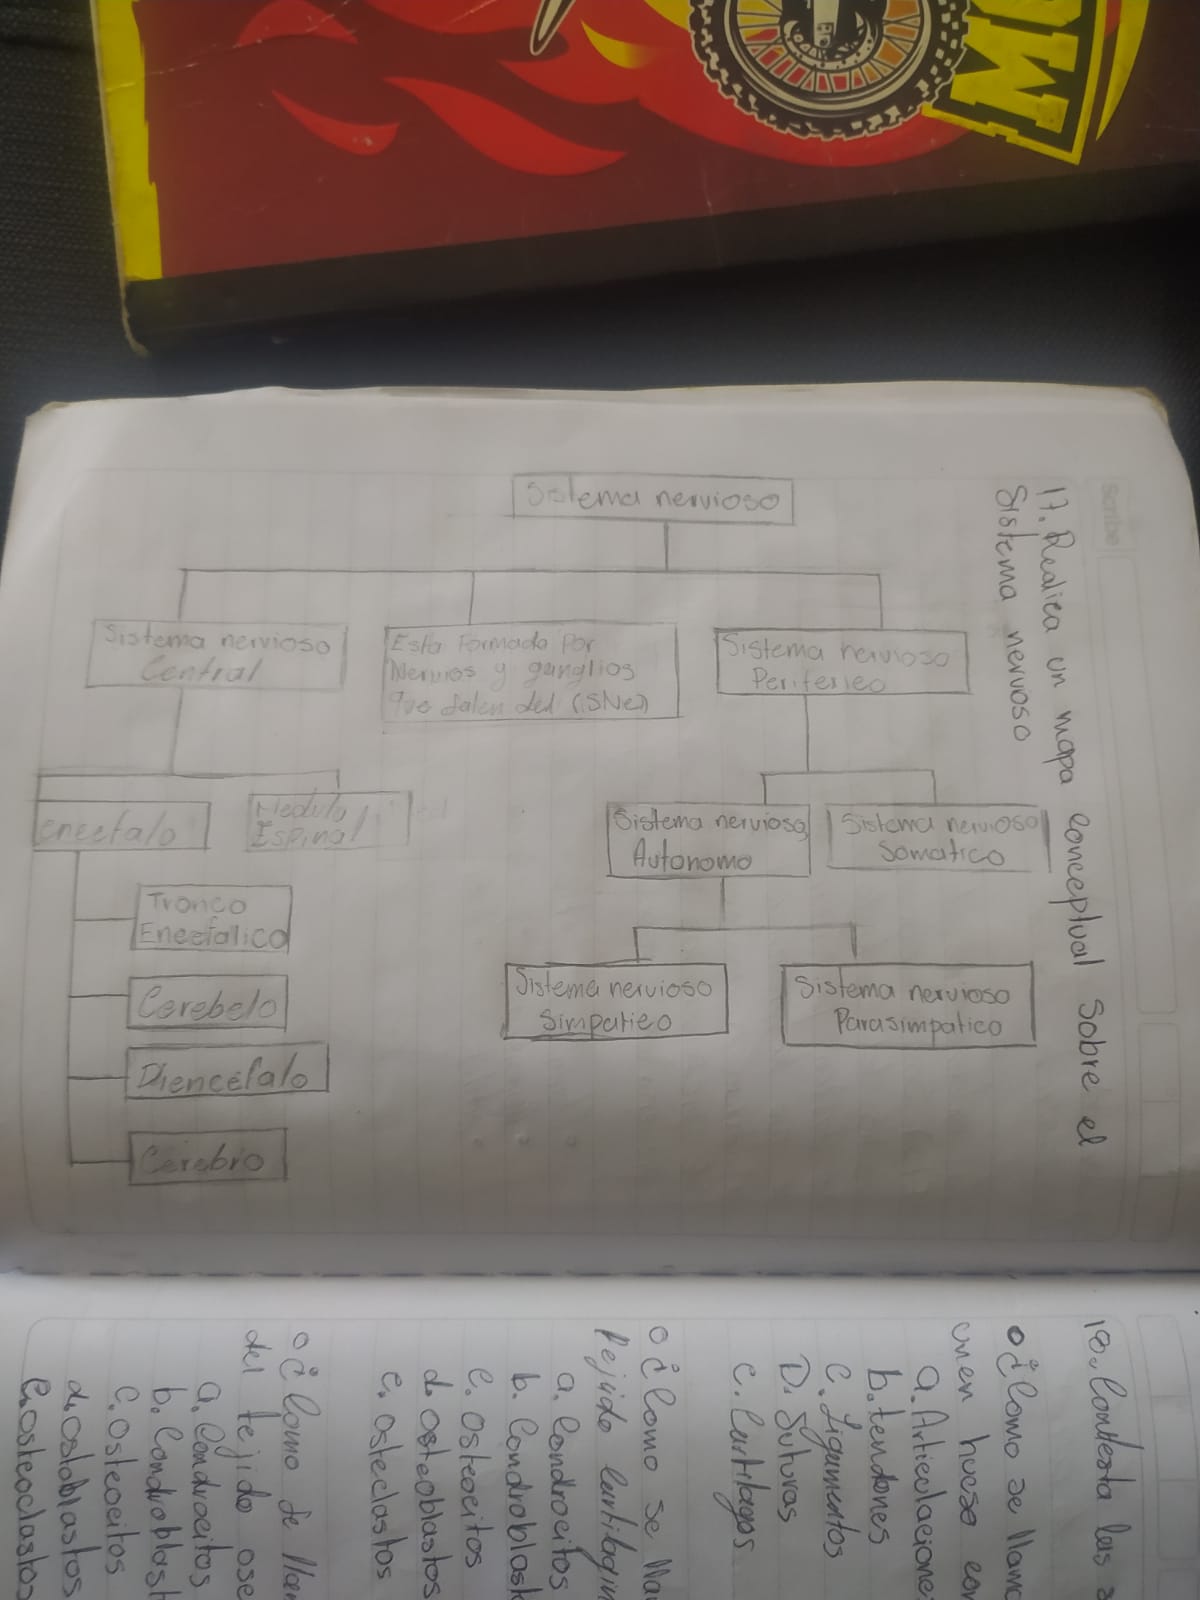 WM
scribe
17. Realiza un mapa conceptual Sobre el
Sistema nervioso
Sistema nervioso
Sistema nervioso
Central
Esta Formada Por
Nervios y ganglios
que salen del (SNC)
Sistema nervioso
Periferico
encefalo
Medula
Espinal
Sistema nervioso
Autonomo
Sistema nervioso
Somatico
Tronco
Encefalico
Cerebelo
Diencefalo
Cerebro
Sistema nervioso
Simpatico
Sistema nervioso
Parasimpatico
18. Contesta las
o ¿Como se llama
unen hueso con
a. Articulacione
b. tendones
C. Ligamentos
D. Suturas
C. Cartilagos
o ¿Como se lla
Tejido cartilagin
a. Condrocitos
b. Condroblast
C. Osteocitos
d. osteoblastos
e. osteclastos
o ¿Como de llam
del tejido ose
a. Condrocitos
b. Condroblast
C. Osteocitos
d. ostoblastos
e. osteoclastos